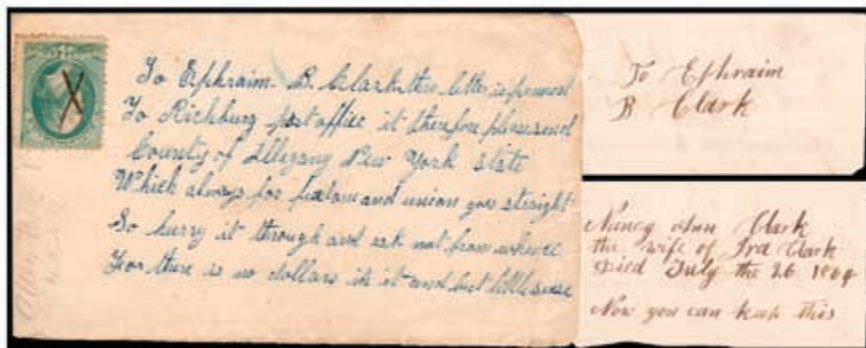 To Ephraim B. Clark this letter is penned
To Richburg post office it therefore please send
County of Allegany New York state
Which always for freedom and union goes straight
So hurry it through and ask not from whence
For there is no dollars in it and but little sense
To Ephraim
B Clark
Nancy Ann Clark
the wife of Ira Clark
Died July the 26 1869
Now you can keep this